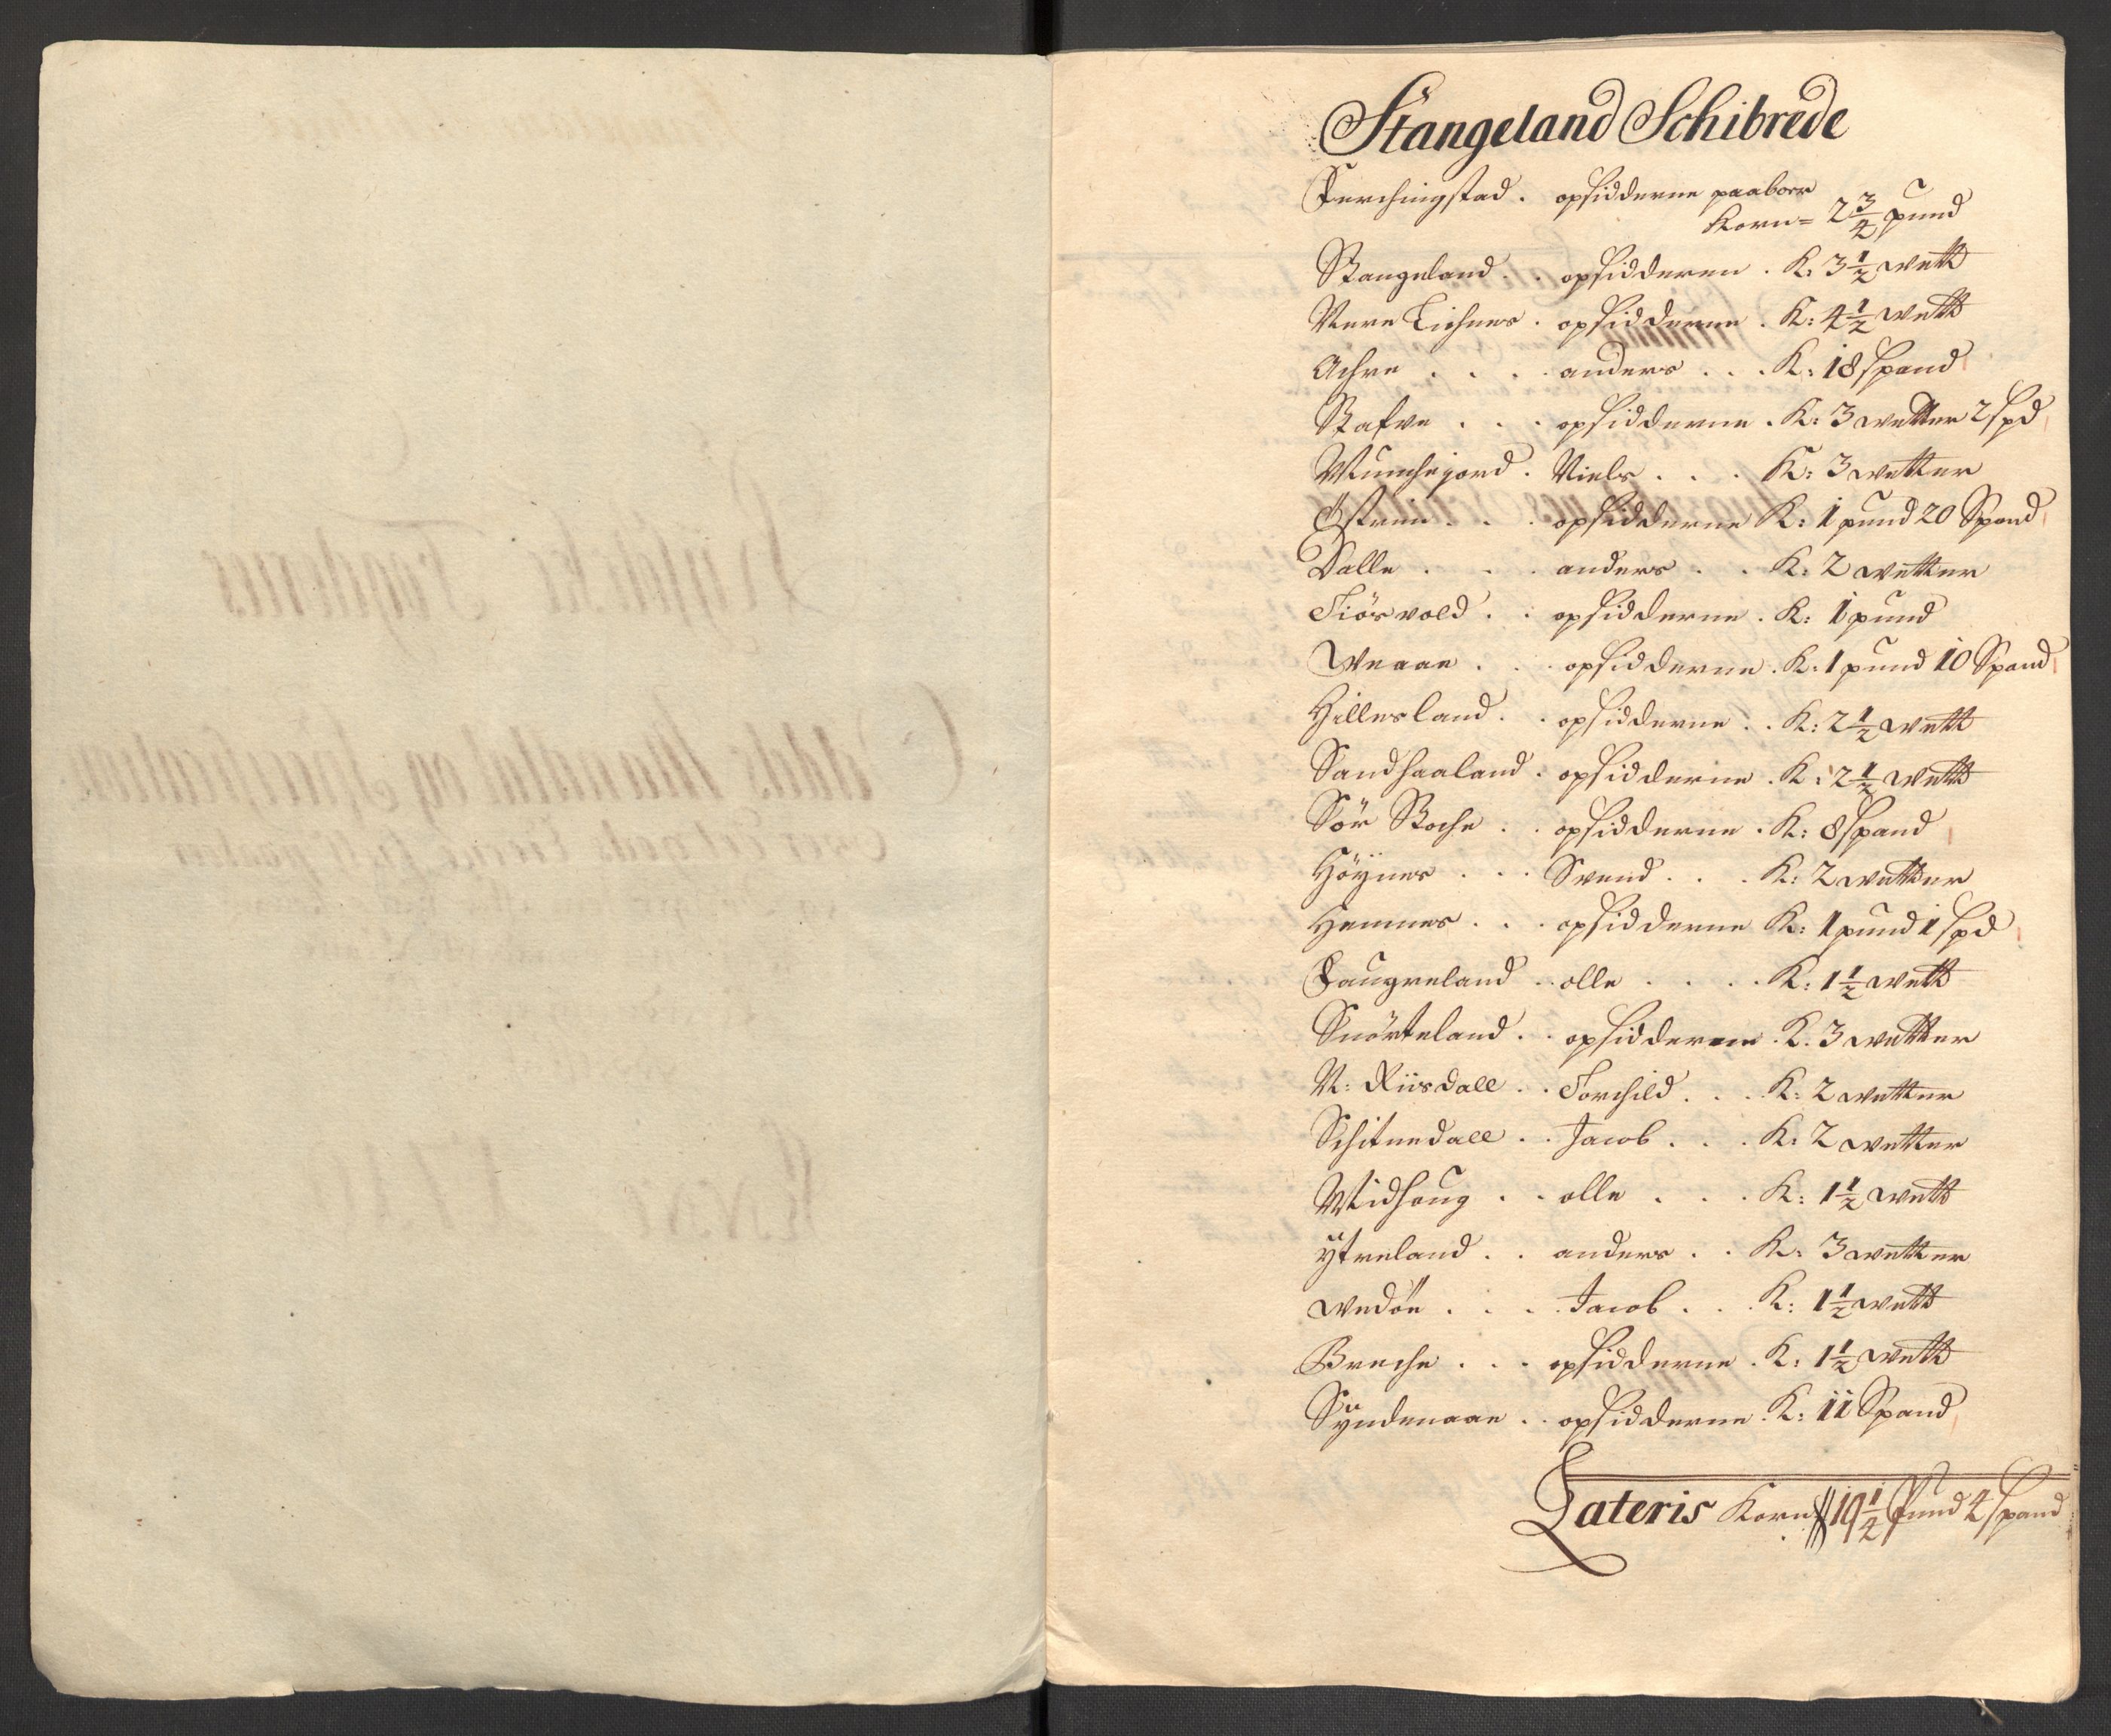 Stangeland Schibrede
Ferchingstad . opsidderne paaboer
Korn = 2 3/4 pund
Stangeland . . opsidderen . K: 3 1/2 wett
Nere Lichnes . opsidderne . K: 4 1/2 wett
Achre . . . . anders . . . K: 18 spand
Stafve . . . opsidderne . K: 3 wetter 2 spd
Munchejord . Niels . . . K: 3 wetter
Østrem . . . opsidderne K: 1 pund 20 Spand
Dalle . . . anders . . K: 2 wetter
Tiösvold . . opsidderne . K: 1 pund
Weaae . . . opsidderne . K: 1 pund 10 Spand
Hillesland . . opsidderne . . K: 2 1/2 wett
Sandhaaland . opsidderne . K: 2 1/2 wett
Sör Stoche . . opsidderne . K: 8 spand
Höÿnes . . . Svend . . . K: 2 wetter
Hemnes . . . opsidderne K: 1 pund 1 spd
Faugreland . . olle . . . . K: 1 1/2 wett
Snörteland . . opsidderne . K. 3 wetter
N: Riisdall . . Torchild . . . K: 2 wetter
Schitnedall . . Jacob . . . K: 2 wetter
Midhoug . . olle . . . K: 1 1/2 wett
ÿtreland . . anders . . K: 3 wetter
wedöe . . . . Jacob . . . K: 1 1/2 wett
Breche . . . opsidderne . K: 1 1/2 wett
Sÿndenaae . . opsidderne . K: 11 Spand
Lateris Korn 19 1/4 Pund 4 spand